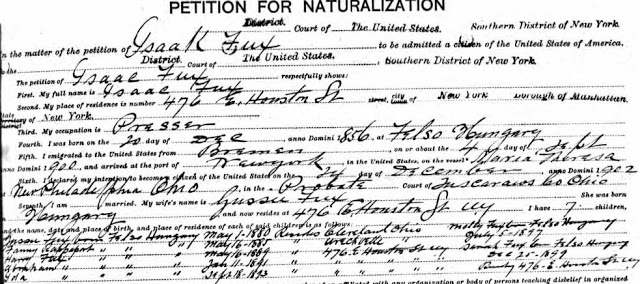 PETITION FOR NATURALIZATION
District. Court of The United States. Southern District of New York.
In the matter of the petition of Isaak Fux to be admitted a citizen of the United States of America.
District. Court of The United States. Southern District of New York.
The petition of Isaac Fux respectfully shows:
First. My full name is Isaac Fux
Second. My place of residence is number 476 E. Houston St street, city of New York Borough of Manhattan,
State of New York.
Third. My occupation is Presser
Fourth. I was born on the 20 day of Dec anno Domini 1856, at Felso Hungary
Fifth. I migrated to the United States from Bremen on or about the 4 day of Sept
anno Domini 1900, and arrived at the port of New york, in the United States, on the vessel Maria Theresa
Sixth. I declared my intention to become a citizen of the United States on the 24 day of December anno Domini 1902
New Philadelphia Ohio in the Probate Court of Tuscarawas Co Ohio
Seventh. I am married. My wife's name is Gussie Fux
Hungary and now resides at 476 E Houston St ny I have 7 children,
and the name, date and place of birth, and place of residence of each of said children is as follows:
born Felso Hungary May 1-1883 Resides Cleveland Ohio
May 16-1885
Harry Fux May 16-1889 476 E Houston St ny
Abraham Jan 11-1891
Ida Sept 18-1893
Felso Hungary
July 5-1897
Fux Felso
Dec 25-1899
476 E. Houston St ny
affiliated with any organization or body of persons teaching disbelief in organized